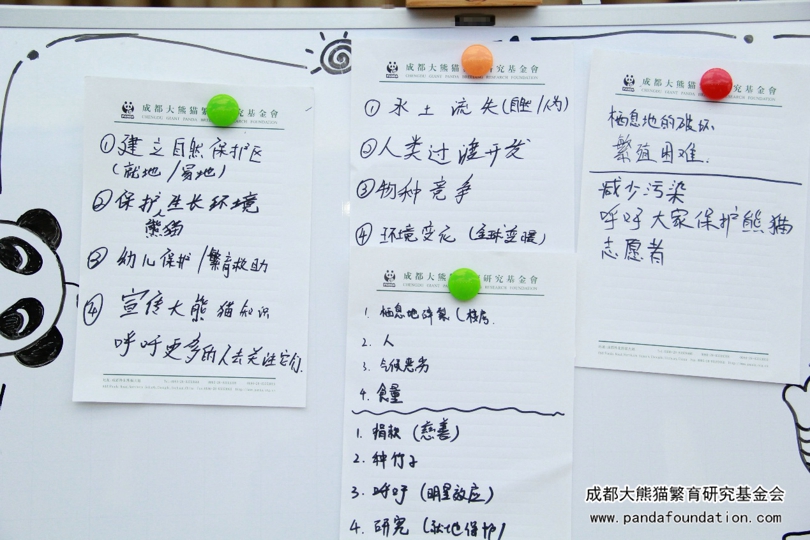 成都大熊猫繁研究基金會
CHENGDU GIANT PANDA FOUNDATION
①建立自然保护区
(就地/易地)
②保护生长环境
熊猫
③幼儿保护/繁育救助
④宣传大熊猫知识
呼吁更多的人去关注它们.
成都大熊猫研究基金會
CHENGDU GIANT PANDA RESEARCH FOUNDATION
①水土流失(自然/人为)
②人类过渡开发
③物种竞争
④环境变化(全球变暖)
成都大熊研究基金會
1. 栖息地碎裂(
2. 人
3. 气候恶劣
4. 食量
1. 捐款(慈善)
2. 种竹子
3. 呼吁(明星效应)
4. 研究(就地保护)
成都大熊猫研究基金會
栖息地的破坏
繁殖困难.
减少污染
呼吁大家保护熊猫
志愿者
成都大熊猫繁育研究基金会
www.pandafoundation.com